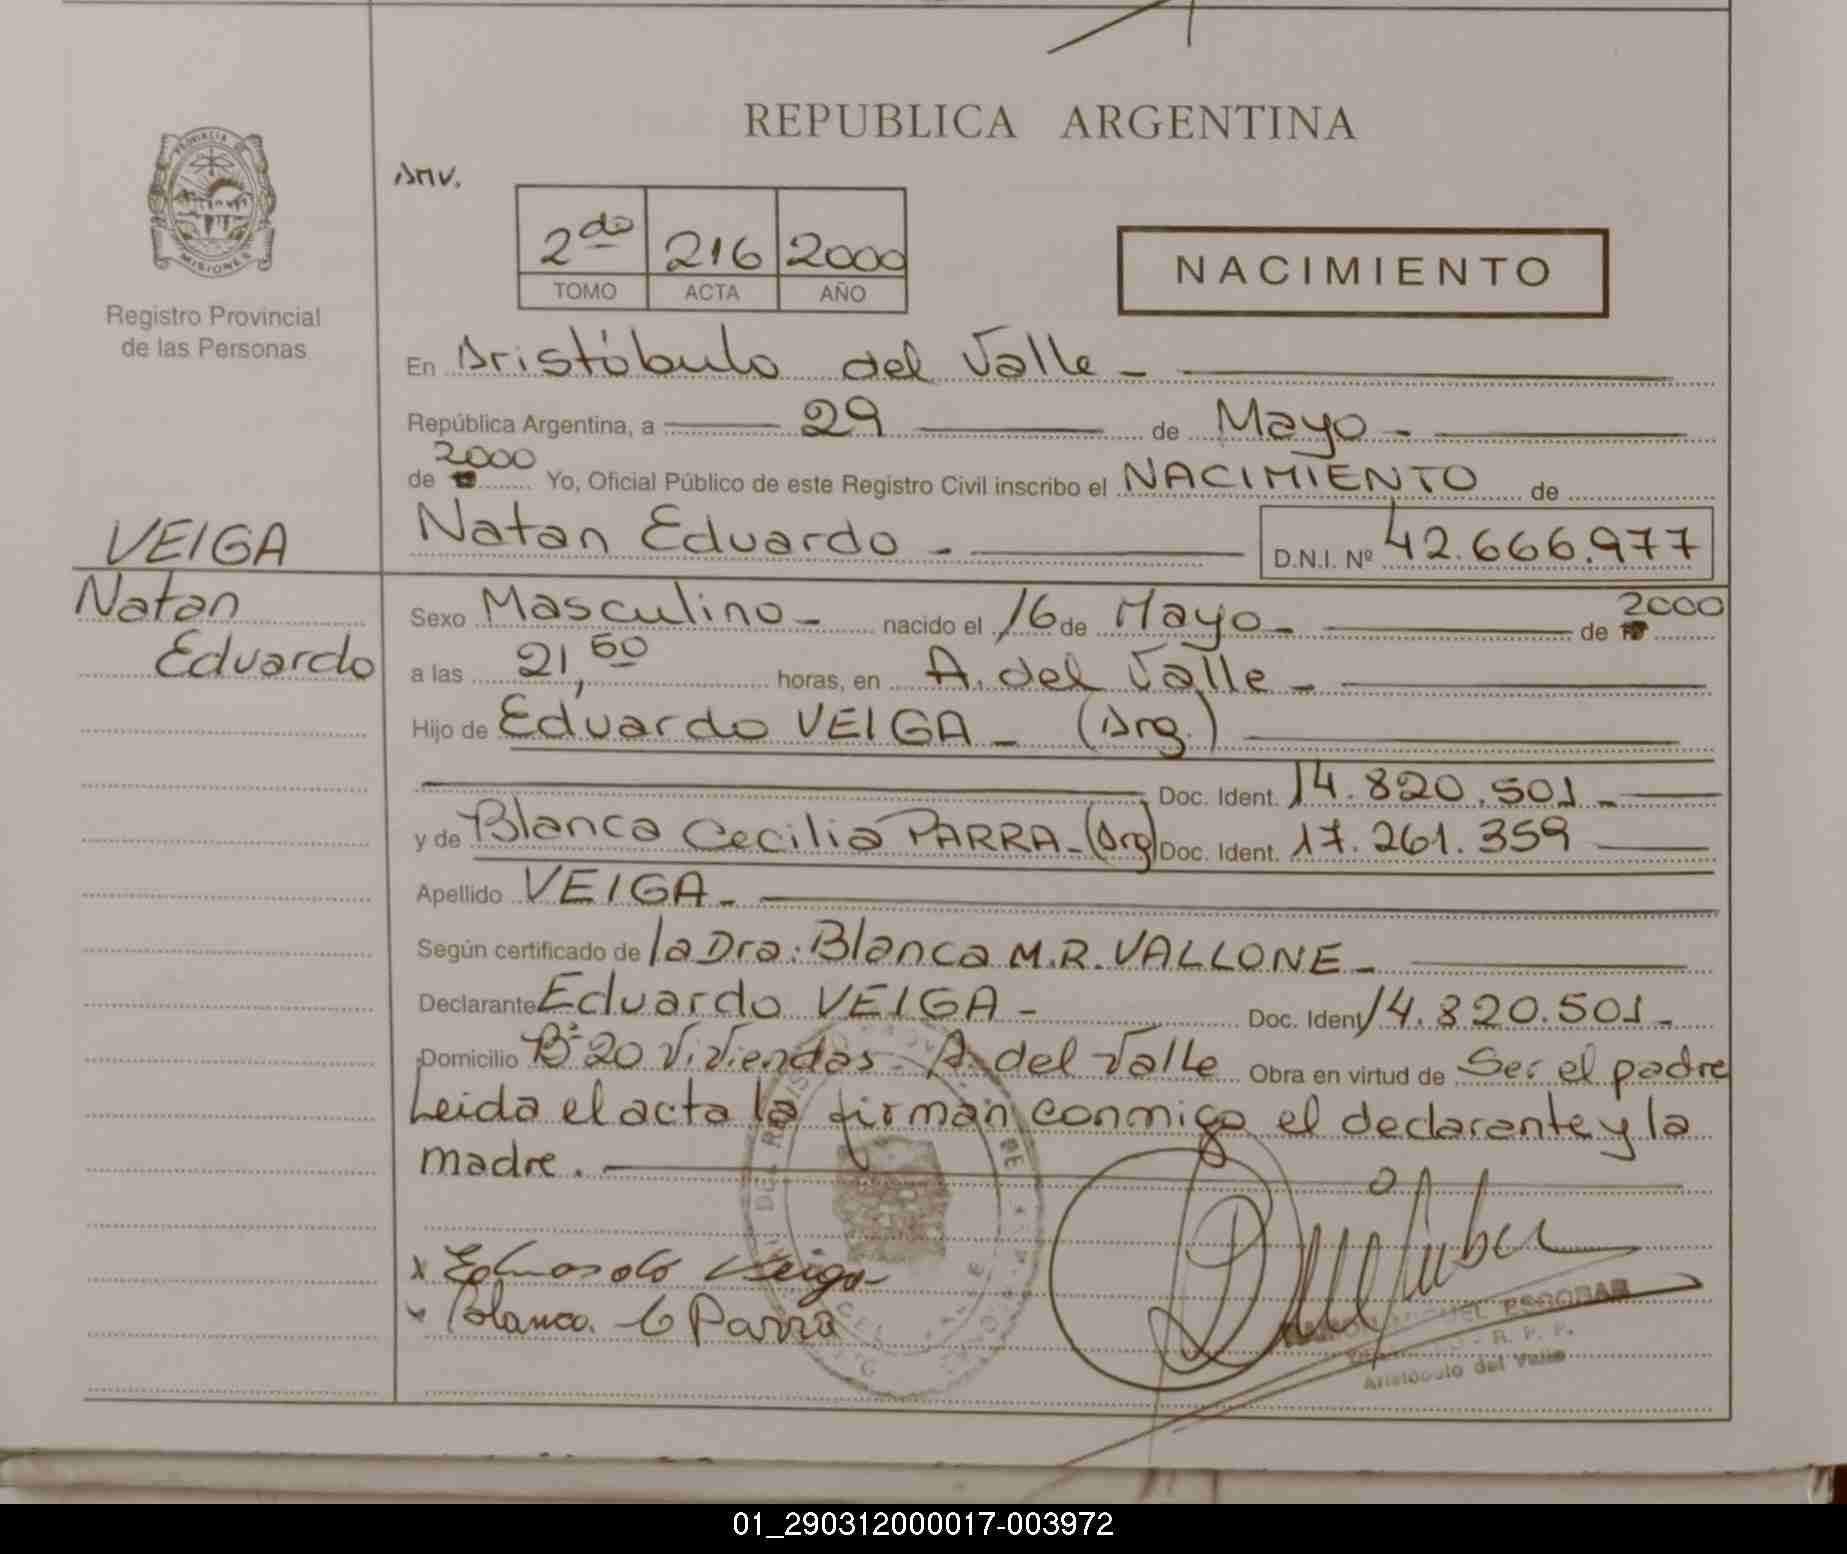 REPUBLICA ARGENTINA
PROVINCIA DE
MISIONES
Registro Provincial
de las Personas
2do 216 2000
TOMO ACTA AÑO
NACIMIENTO
En Aristóbulo del Valle -
República Argentina, a 29 de Mayo -
de 2000 Yo, Oficial Público de este Registro Civil inscribo el NACIMIENTO de
VEIGA
Natan
Eduardo
Natan Eduardo - D.N.I. Nº 42.666.977
Sexo Masculino - nacido el 16 de Mayo - de 2000
a las 21,50 horas, en A. del Valle -
Hijo de Eduardo VEIGA - (Arg.)
Doc. Ident. 14.820.501 -
y de Blanca Cecilia PARRA - (Arg) Doc. Ident. 17.261.359
Apellido VEIGA -
Según certificado de la Dra: Blanca M.R. VALLONE -
Declarante Eduardo VEIGA - Doc. Ident. 14.820.501 -
Domicilio Bº 20 Viviendas - A. del Valle Obra en virtud de Ser el padre
Leida el acta la firman conmigo el declarante y la
madre.
x Eduardo Veiga
Blanca C Parra
ESCOBAR
R. P. P.
Aristóbulo del Valle
01_290312000017-003972